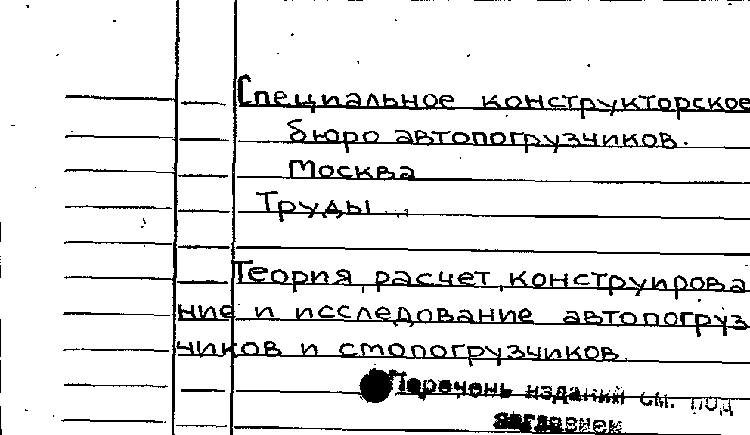 Специальное конструкторское
бюро автопогрузчиков.
Москва
Труды...
Теория, расчет, конструирова
ние и исследование автопогруз
чиков и стопогрузчиков.
Перечень изданий см. под
заглавием